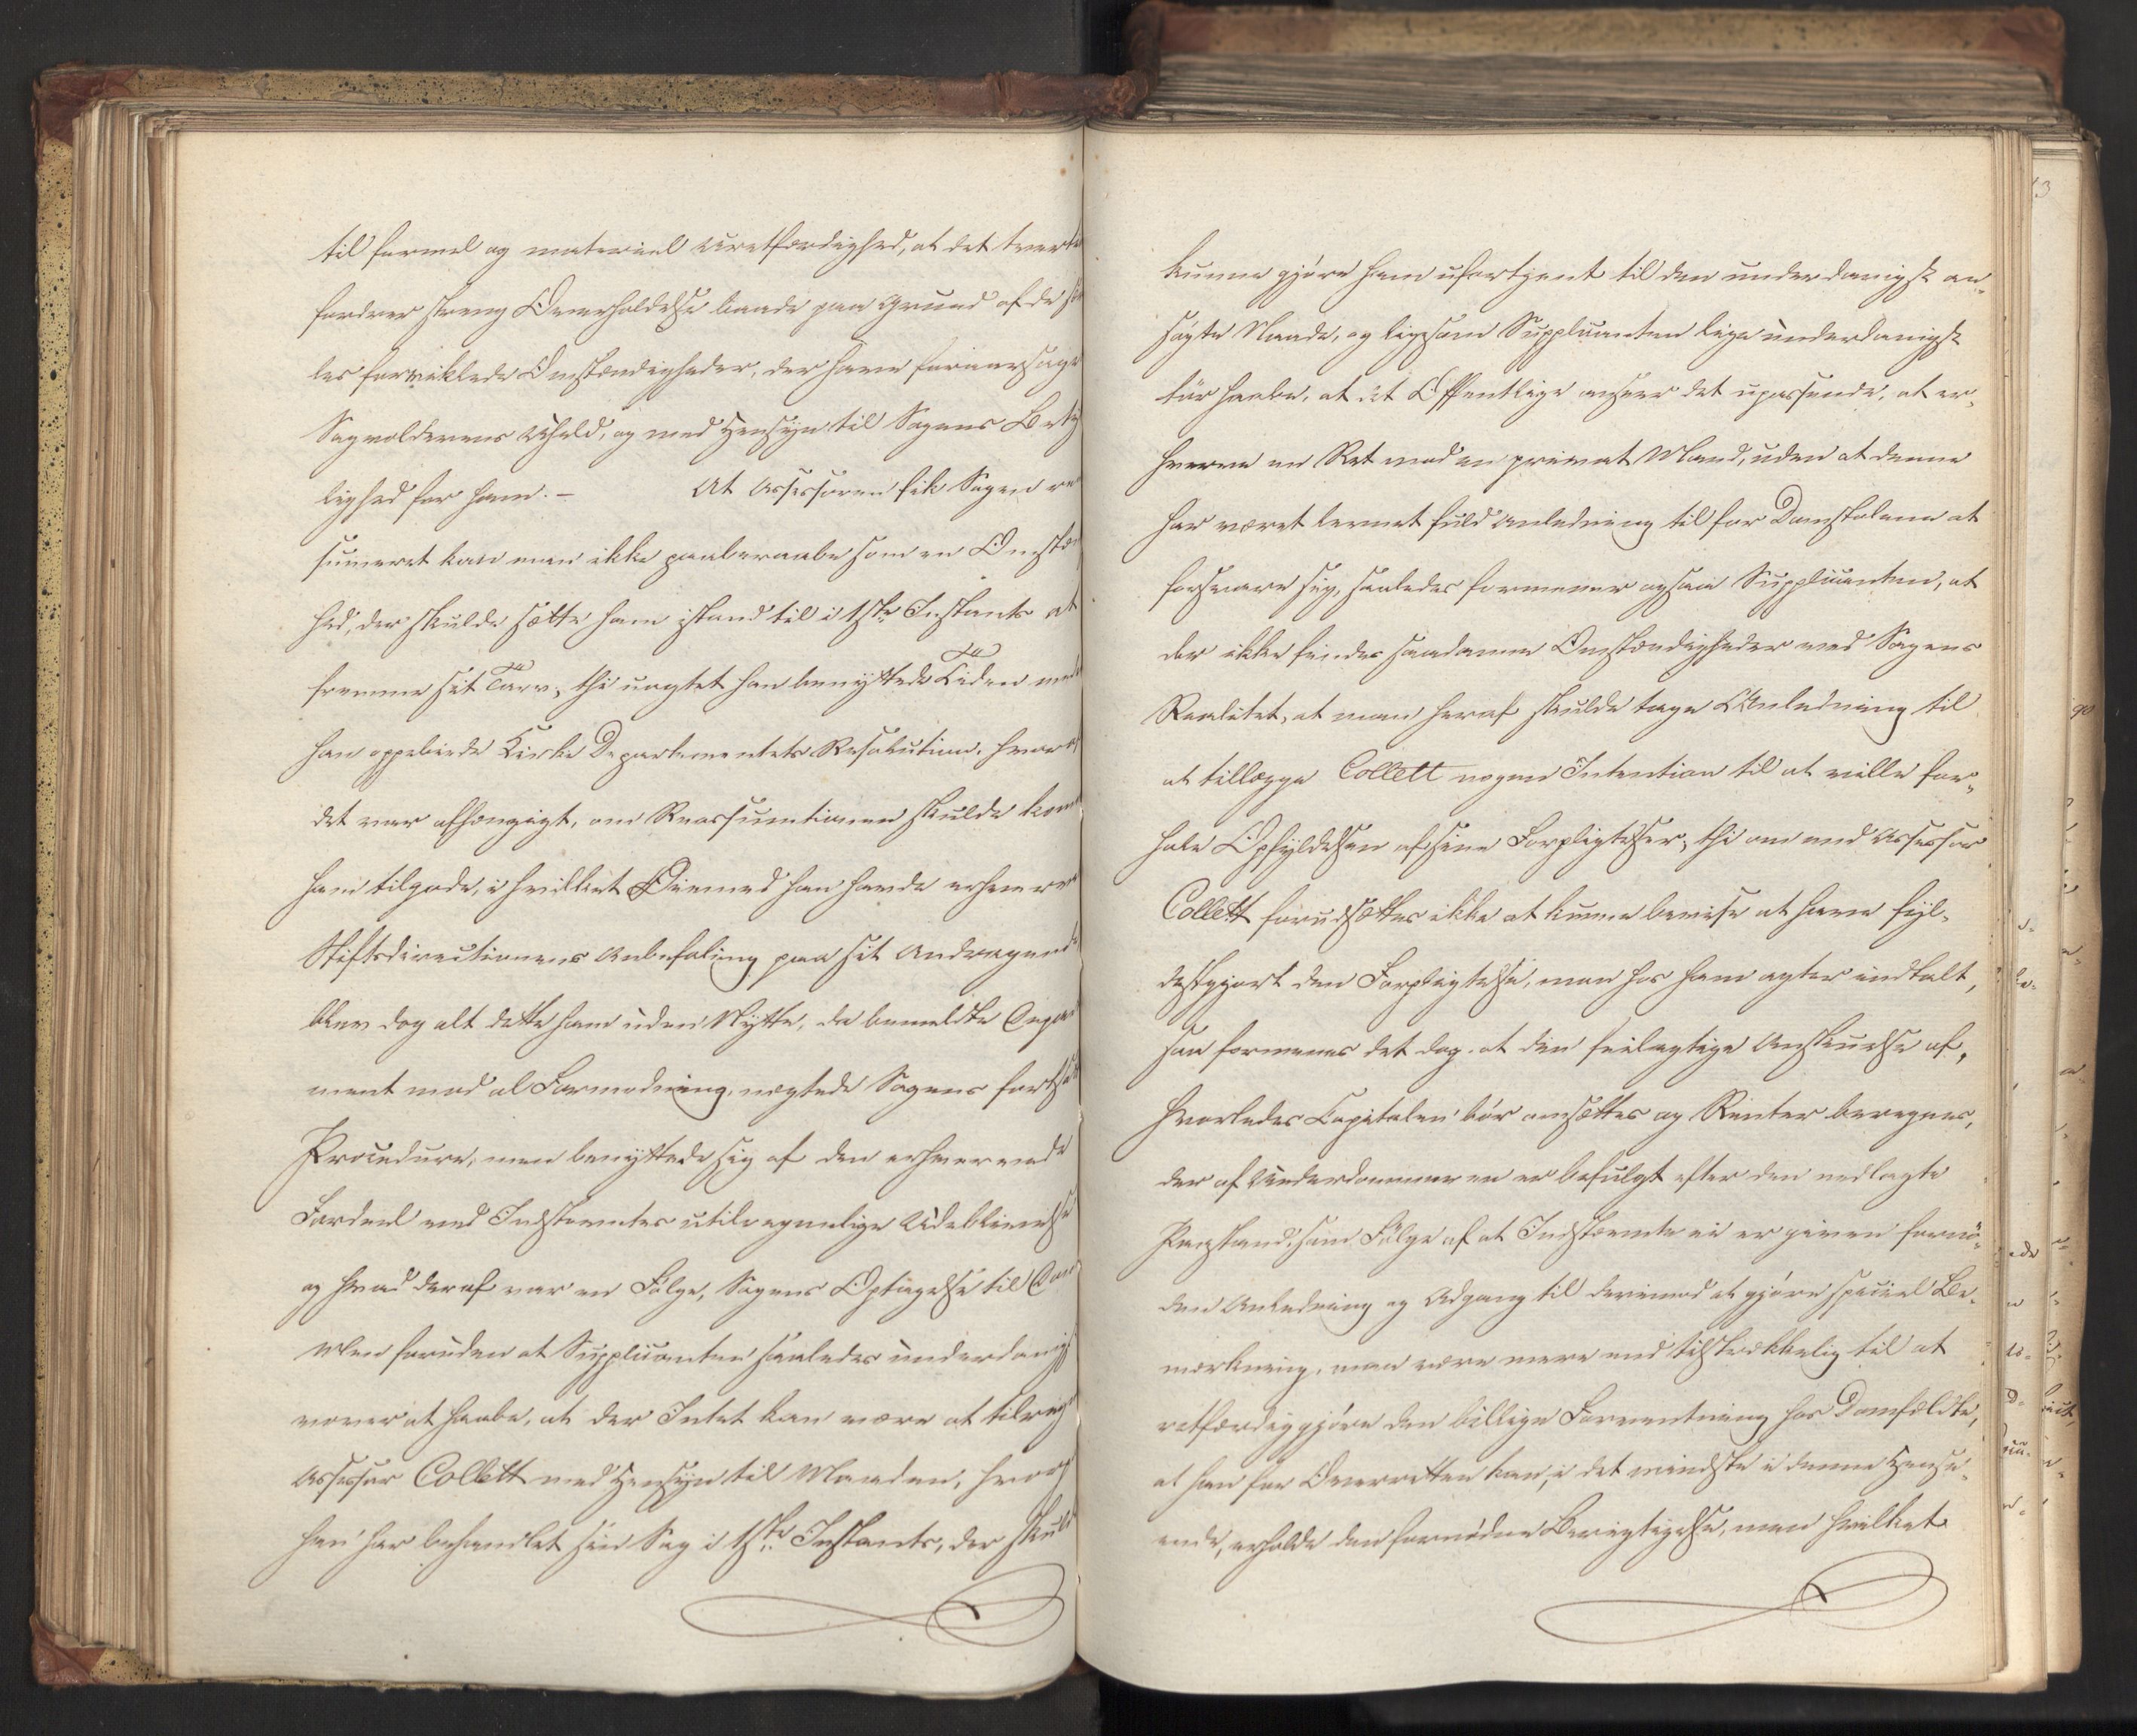 til formel og materiel Uretfærdighed, at det tverti
fordrer streng Overholdelse baade paa Grund af de
les forviklede Omstændigheder, der have foraarsaget
Sagvolderens Uheld, og med Hensyn til Sagens Bety
lighed for ham. – At Assessoren fik Sagen re
sumeret kan man ikke paaberaabe som en Omstæn
hed, der skulde sætte ham istand til i 1ste Instants at
fremme sit Tarv, thi uagtet han benyttede Tiden med
han oppebiede Kirke Departementets Resolution, hvoraf
det var afhængigt, om Reassumtionen skulde kom
ham tilgode, i hvilket Øiemed han havde erhverv
Stiftsdirectionens Anbefaling paa sit Andragende
blev dog alt dette ham uden Nytte, da bemeldte Depar
ment mod al Formodning, nægtede Sagens fortsatte
Procedure, men benyttede sig af den erhvervede
Fordeel ved Indstevntes utilregnelige Udeblivelse
og hvad deraf var en Følge, Sagens Optagelse til Dom
Men foruden at Supplicanten saaledes underdanigst
vover at haabe, at der Intet kan være at tilregne
Assessor Collett med Hensyn til Maaden, hvorpaa
han har behandlet sin Sag i 1ste Instants, der skulde
kunne gjøre ham ufortjent til den underdanigst an-
søgte Naade, og ligesom Supplicanten lige underdanigst
tør haabe, at det Offentlige anseer det upassende, at er-
hverve en Ret mod en privat Mand, uden at denne
har været levnet fuld Anledning til for Domstolene at
forsvare sig, saaledes formener ogsaa Supplicanten, at
der ikke findes saadanne Omstændigheder ved Sagens
Realitet, at man heraf skulde tage Anledning til
at tillægge Collett nogen Intention til at ville for-
hale Opfyldelsen af sine Forpligtelser, thi om end Assessor
Collett forudsættes ikke at kunne bevise at have fyl-
destgjort den Forpligtelse, man hos ham agter indtalt,
saa formenes det dog at den feilagtige Anskuelse af,
hvorledes Capitalen bør ansættes og Renter beregnes,
der af Underdommeren er befulgt efter den nedlagte
Paastand, som Følge af at Indstevnte ei er given fornø-
den Anledning og Adgang til derimod at gjøre speciel Be-
mærkning, maa være mere end tilstrækkelig til at
retfærdiggjøre den billige Forventning hos Domfældte,
at han for Overretten kan, i det mindste i denne Hense-
ende, erholde den fornødne Berigtigelse, men hvilket